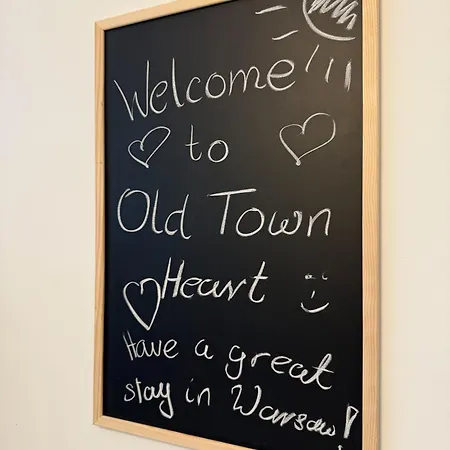 Welcome!!!
to
Old Town
Heart
Have a great
stay in Warsaw!